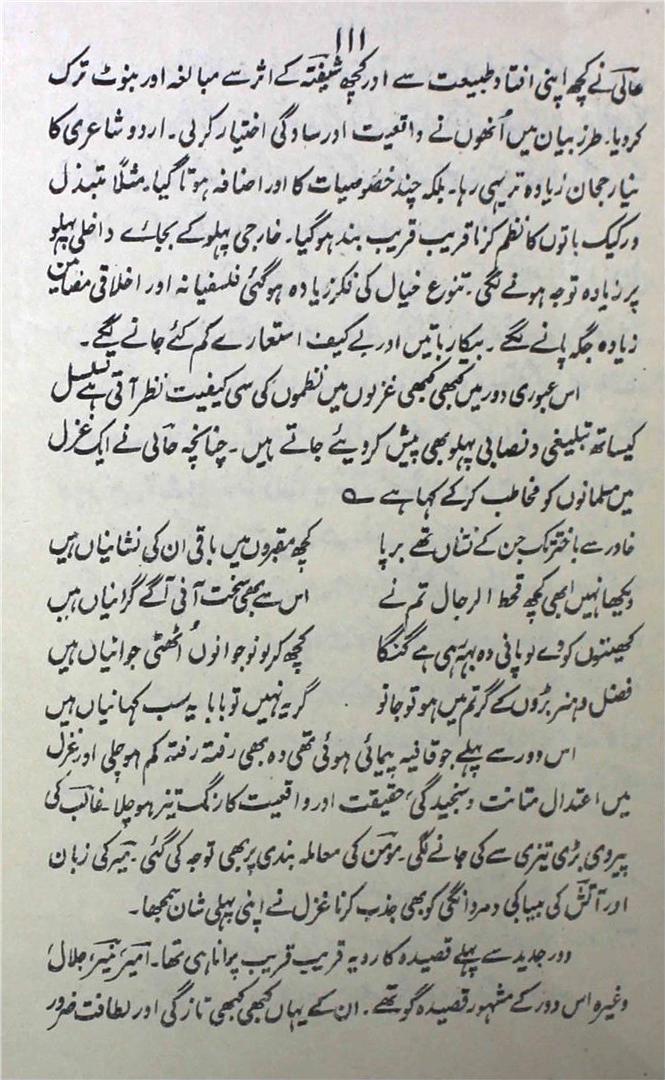 ۱۱۱
حالی نے کچھ اپنی افتاد طبیعت سے اور کچھ شیفتہ کے اثر سے مبالغہ اور بنوٹ ترک
کر دیا۔ طرز بیان میں اُنھوں نے واقعیت اور سادگی اختیار کرلی۔ اردو شاعری کا
نیا رجحان زیادہ تر یہی رہا۔ بلکہ چند خصوصیات کا اور اضافہ ہوتا گیا۔ مثلاً متبذل
ورکیک باتوں کا نظم کرنا قریب قریب بند ہوگیا۔ خارجی پہلو کے بجائے داخلی پہلو
پر زیادہ توجہ ہونے لگی۔ تنوع خیال کی فکر زیادہ ہوگئی فلسفیانہ اور اخلاقی مضامین
زیادہ جگہ پانے لگے۔ بیکار باتیں اور بے کیف استعارے کم کئے جانے لگے۔
اس عبوری دور میں کبھی کبھی غزلوں میں نظموں کی سی کیفیت نظر آتی ہے تسلسل
کیساتھ تبلیغی و نصابی پہلو بھی پیش کر دیئے جاتے ہیں۔ چنانچہ حالی نے ایک غزل
میں مسلمانوں کو مخاطب کر کے کہا ہے ؎
خاور سے باختر تک جن کے نشاں تھے برپا کچھ مقبروں میں باقی ان کی نشانیاں ہیں
دیکھا نہیں ابھی کچھ قحط الرجال تم نے اس سے بھی سخت آنی آگے گرانیاں ہیں
کھیتوں کو دے لو پانی وہ بہہ رہی ہے گنگا کچھ کرلو نوجوانوں اُٹھتی جوانیاں ہیں
فضل و ہنر بڑوں کے گر تم میں ہو تو جانو گر یہ نہیں تو بابا یہ سب کہانیاں ہیں
اس دور سے پہلے جو قافیہ پیمائی ہوئی تھی وہ بھی رفتہ رفتہ کم ہو چلی اور غزل
میں اعتدال متانت و سنجیدگی، حقیقت اور واقعیت کا رنگ تیز ہو چلا۔ غالب کی
پیروی بڑی تیزی سے کی جانے لگی۔ مومن کی معاملہ بندی پر بھی توجہ کی گئی۔ میر کی زبان
اور آتش کی بیباکی و مردانگی کو بھی جذب کرنا غزل نے اپنی پہلی شان سمجھا۔
دور جدید سے پہلے قصیدہ کا رویہ قریب قریب پرانا ہی تھا۔ امیر، منیر، جلال،
وغیرہ اس دور کے مشہور قصیدہ گو تھے۔ ان کے یہاں کبھی کبھی تازگی اور لطافت ضرور